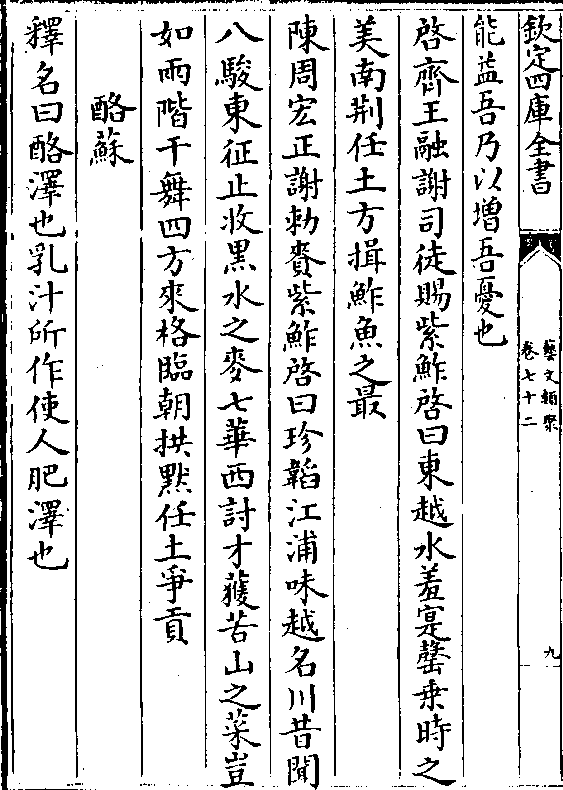 欽定四庫全書
藝文類聚
卷七十二
九
能益吾乃以增吾憂也
啓齊王融謝司徒賜紫鮓啓曰東越水羞寔罄乗時之
美南荆任土方揖鮓魚之最
陳周宏正謝勅賚紫鮓啓曰珍韜江浦味越名川昔聞
八駿東征止收黒水之麥七華西討才蒦苦山之菜豈
如雨階干舞四方來格臨朝拱黙任土爭貢
酪蘇
釋名曰酪澤也乳汁所作使人肥澤也